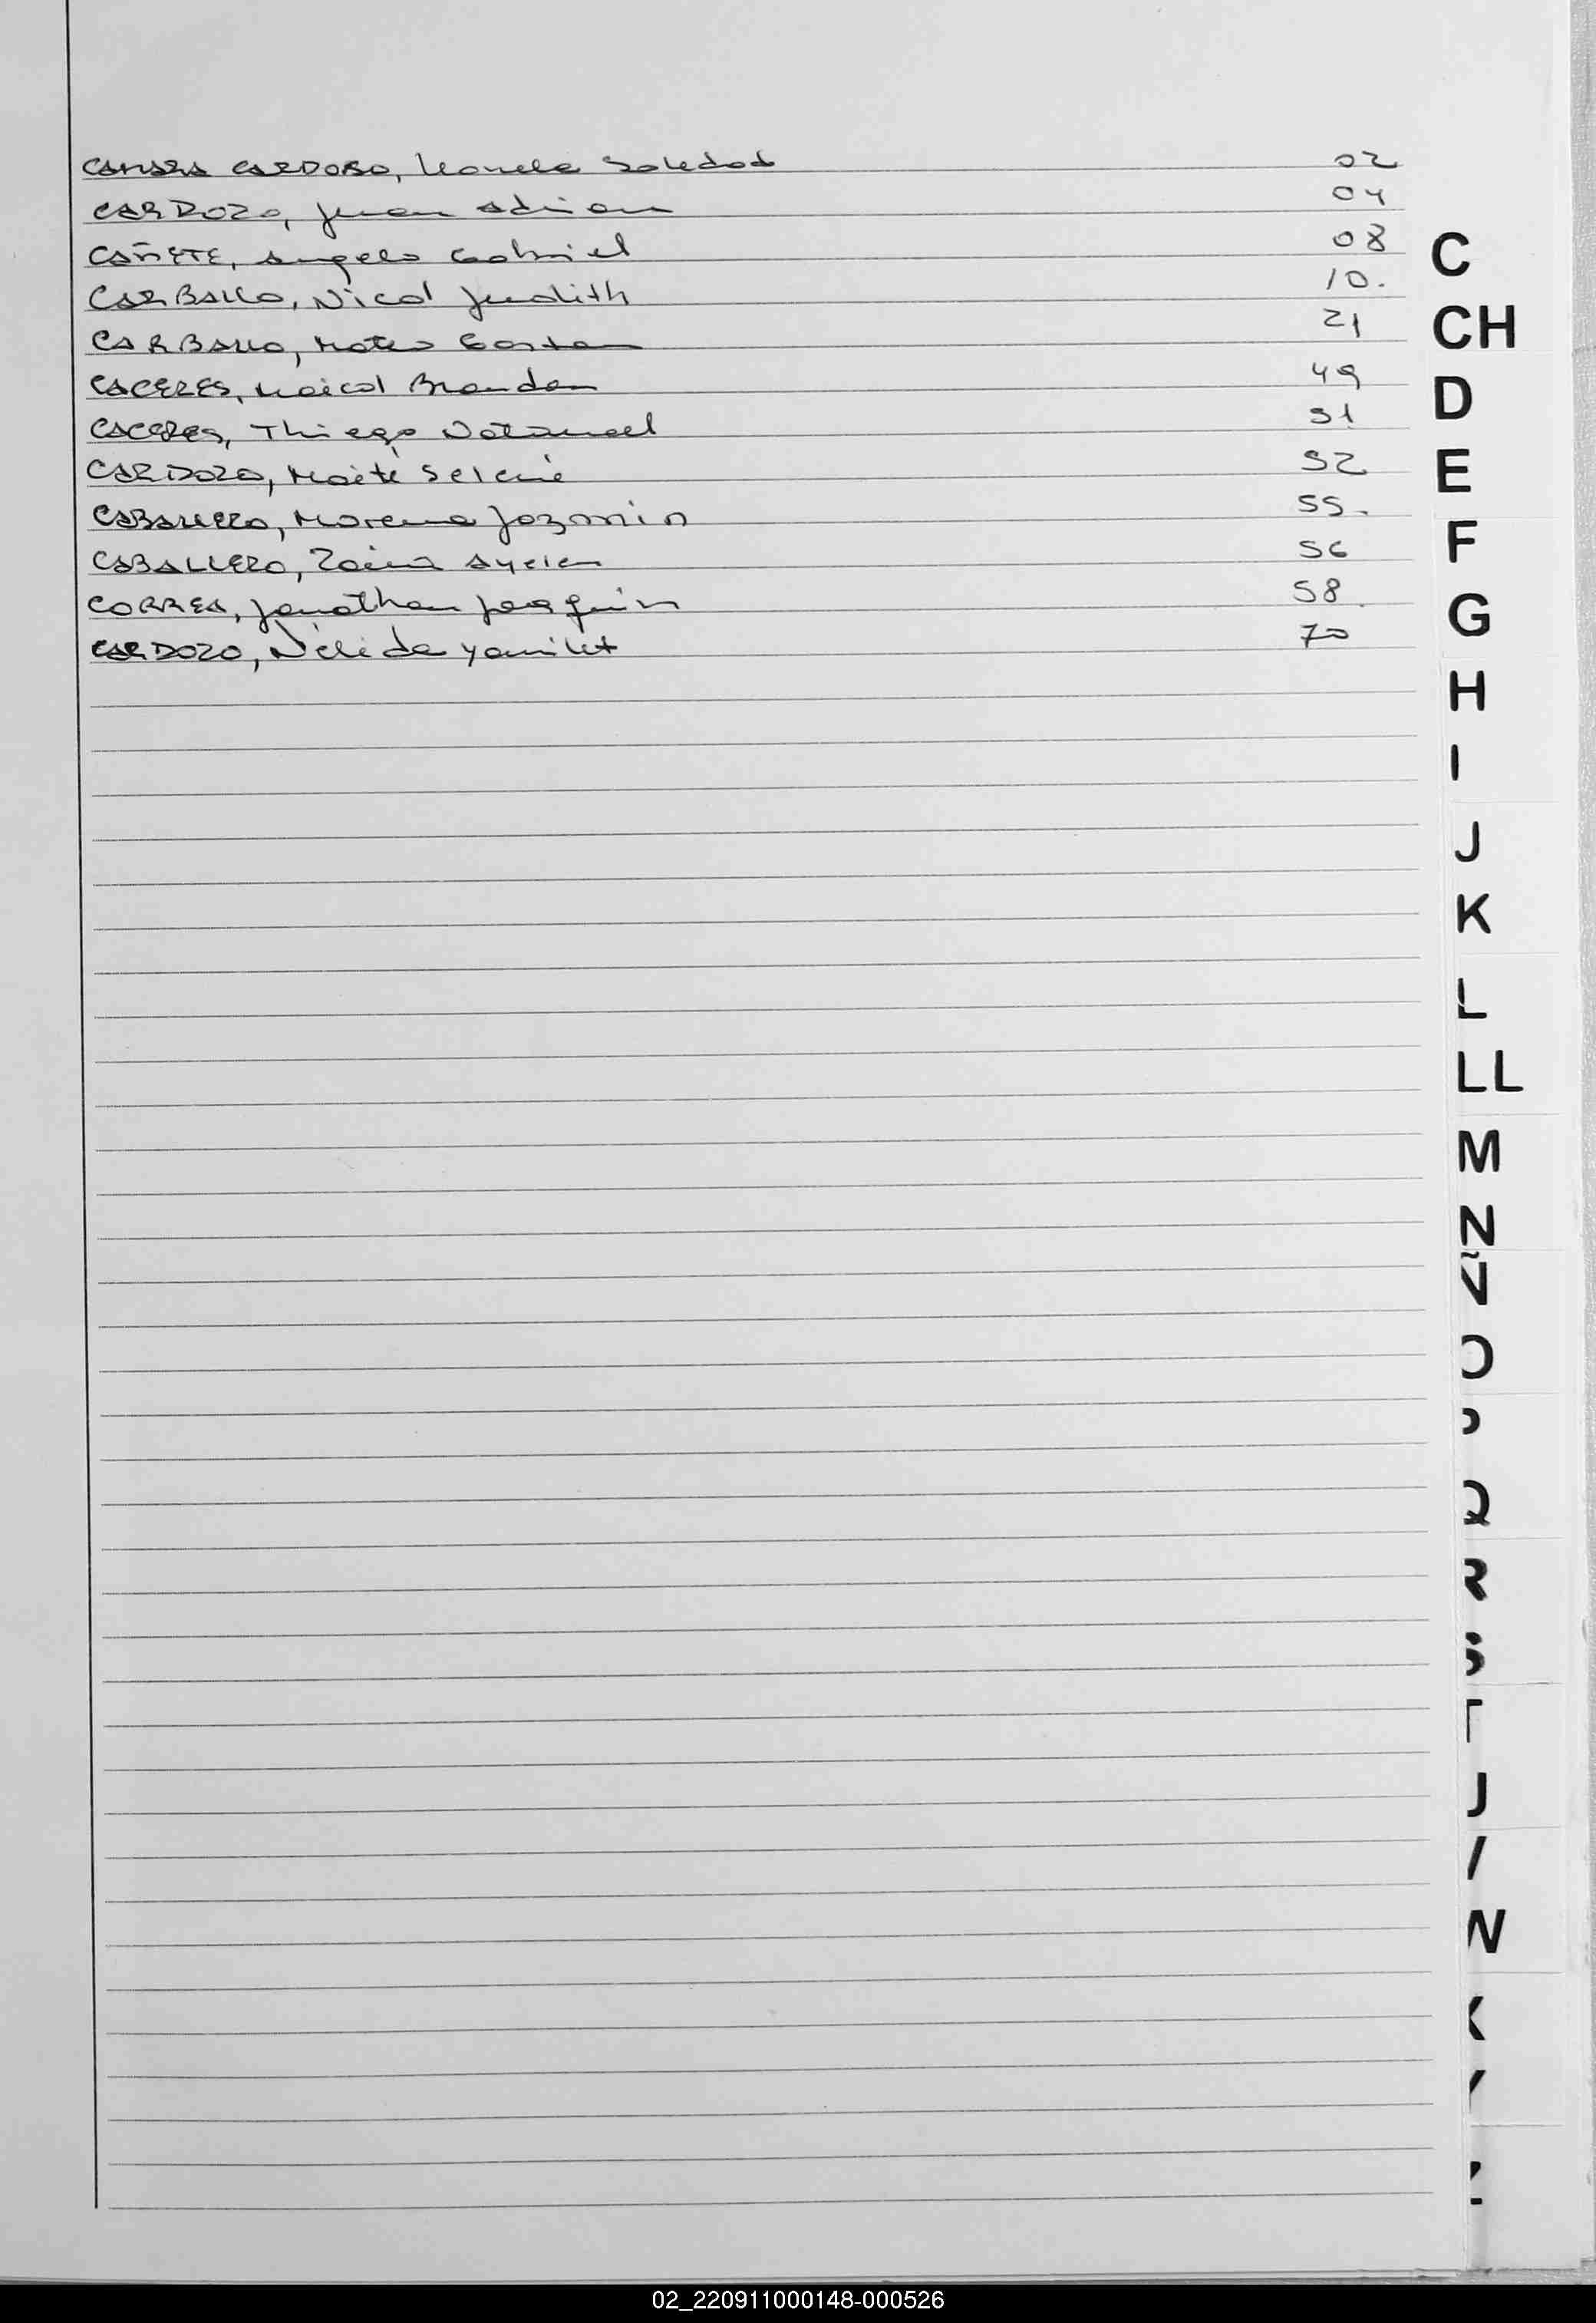 CAMARA CARDOSO, Leonela Soledad 02
CARDOZO, Juan Adrian 04
CAÑETE, Angelo Gabriel 08
CARBALLO, Nicol Judith 10.
CARBALLO, Mateo 21
CACERES, Maicol Brandon 49
CACERES, Thiego Natanael 51
CARDOZO, Maité Selene 52
CABALLERO, Morena Jazmin 55.
CABALLERO, Zaira Ayelen 56
CORREA, Jonathan Joaquin 58
CARDOZO, Nélida Yamilet 70
C
CH
D
E
F
G
H
I
J
K
L
LL
M
N
Ñ
O
P
Q
R
S
T
U
V
W
X
Y
Z
02_220911000148-000526